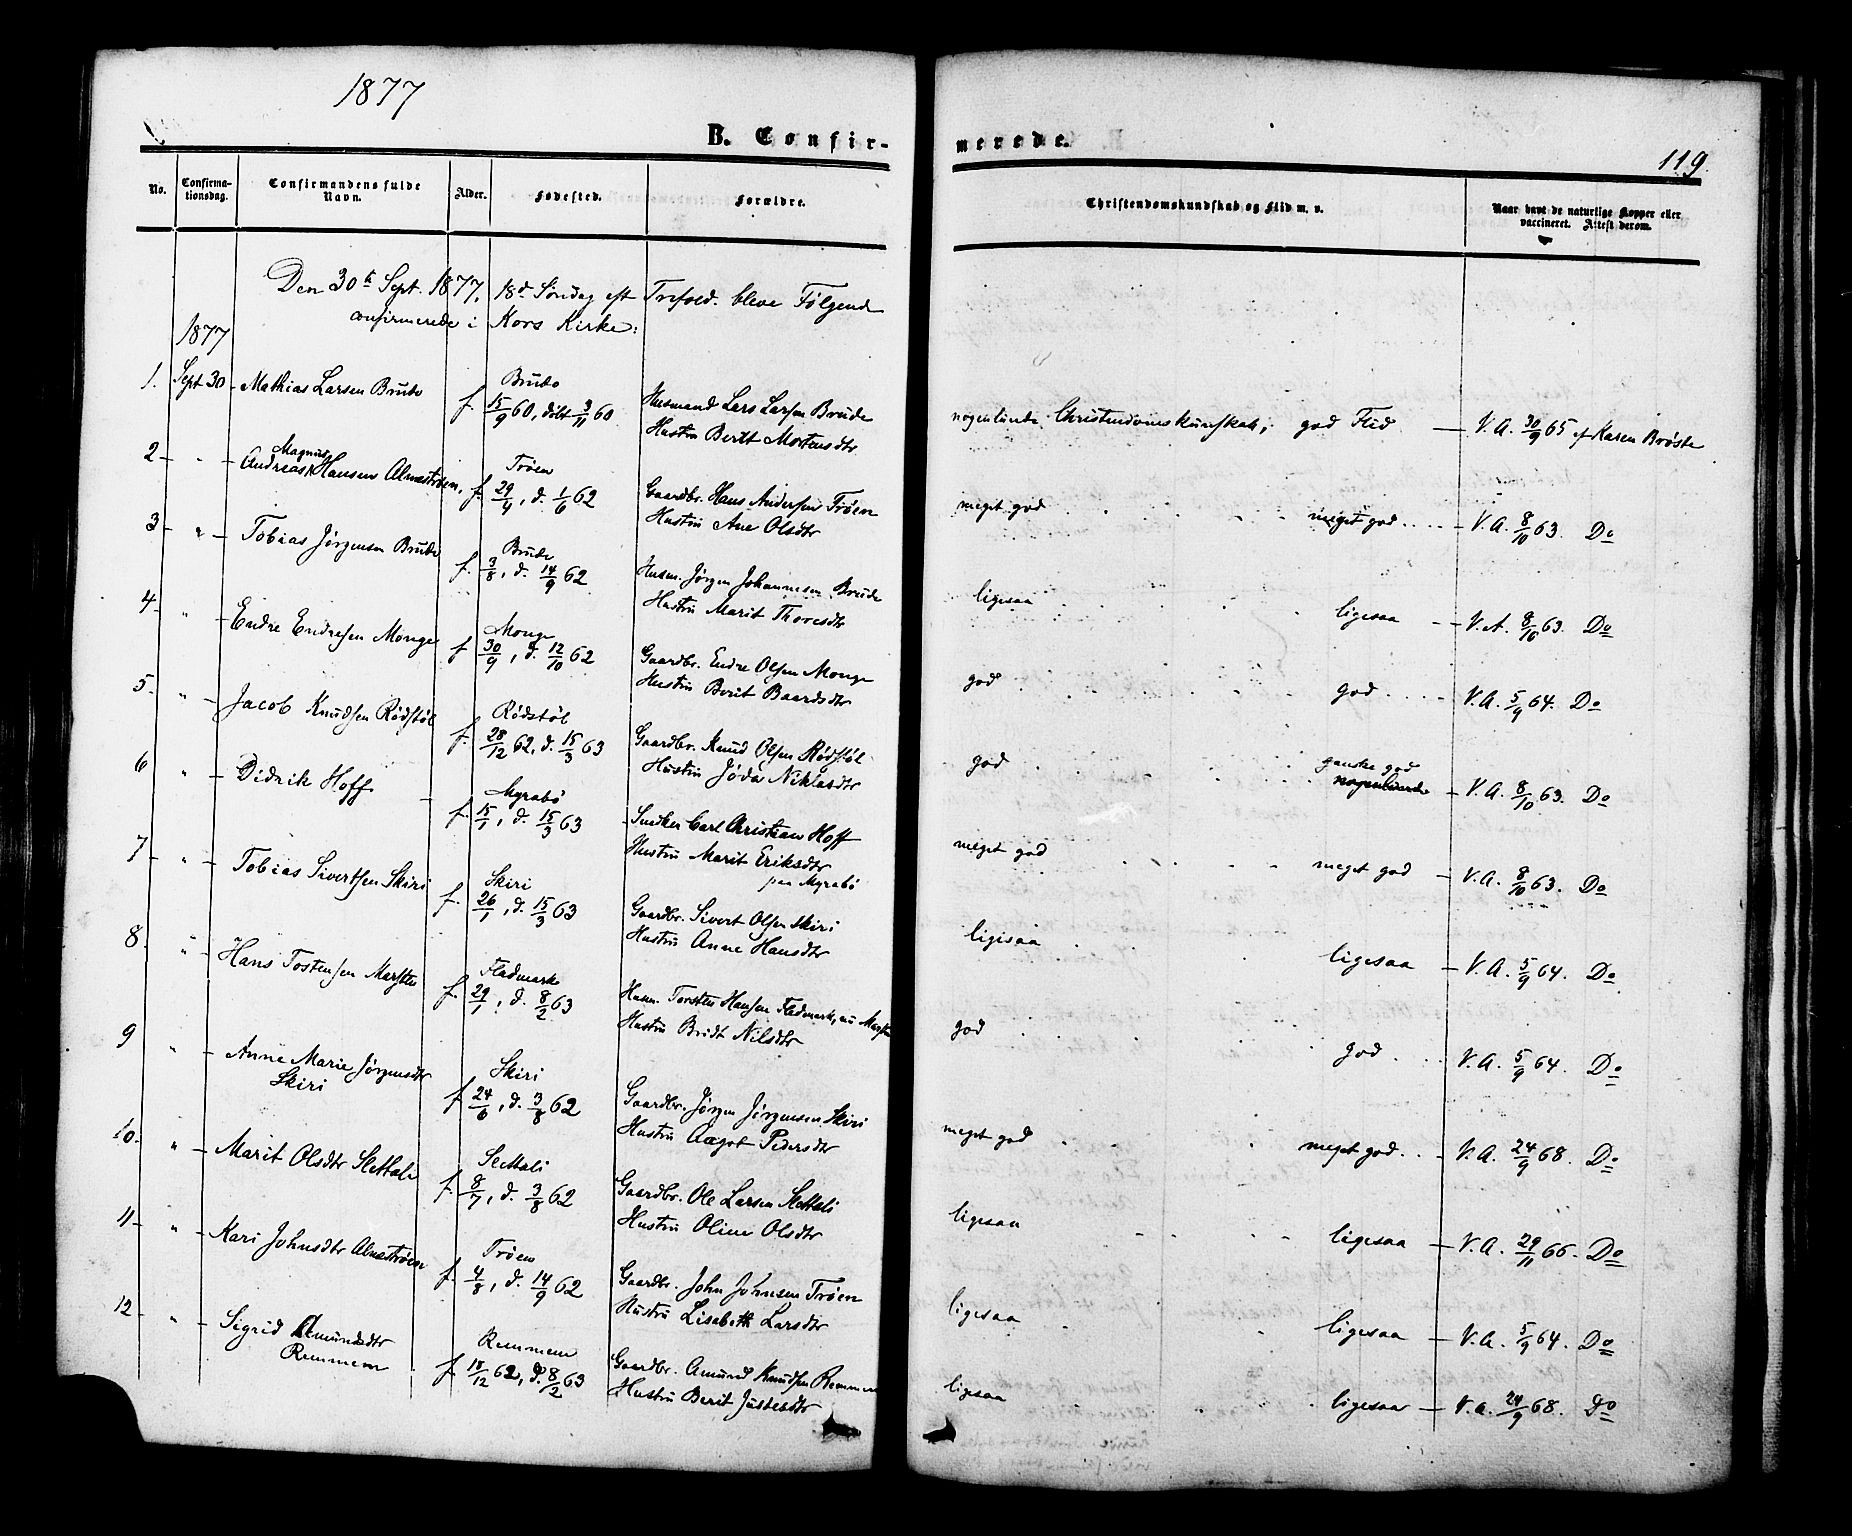 1877
B. Confir-
merede.
119.
No.
Confirma-
tionsdag.
Confirmandens fulde
Navn.
Alder.
Fødested.
Forældre.
Christendomskundskab og Flid m. v.
Naar havt de naturlige Kopper eller
vaccineret. Attest derom.
Den 30te Sept. 1877, 18d Søndag eft Trefold. bleve Følgende
confirmerede i Kors Kirke:
1877
1. Sept 30 - Mathias Larsen Brude
Brude
f. 15/9 60, døbt 3/11 60
Husmand Lars Larsen Brude
Hustru Berit Mortensdtr
nogenlunde Christendomskundskab, god Flid - V.A. 30/9 65 af Karen Brøste
2 - " - Andreas Magnus Hansen Almestrøen,
Trøen
f. 29/4, d. 1/6 62
Gaardbr. Hans Andersen Trøen
Hustru Ane Olsdtr
meget god meget god - V.A. 8/10 63. Do
3 - " - Tobias Jørgensen Brude
Brude
f. 3/8, d. 14/9 62
Husm. Jørgen Johannesen Brude
Hustru Marit Thoresdtr
ligesaa ligesaa - V.A. 8/10 63. Do
4 - " - Endre Endresen Monge
Monge
f 30/9, d. 12/10 62
Gaardbr. Endre Olsen Monge
Hustru Berit Baardsdtr
god god - V.A. 5/9 64. Do
5. " - Jacob Knudsen Rødstøl
Rødstøl
f. 28/12 62, d. 15/3 63
Gaardbr. Knud Olsen Rødstøl
Hustru Jøda Niklasdtr
god ganske god
nogenlunde - V.A. 8/10 63. Do
6 " - Didrik Hoff -
Myrabø
f. 15/1, d. 15/3 63
Snedker Carl Christian Hoff
Hustru Marit Eriksdtr
paa Myrabø
meget god meget god - V.A. 8/10 63. Do
7 - " - Tobias Sivertsen Skiri
Skiri
f. 26/1, d. 15/3 63
Gaardbr. Sivert Olsen Skiri
Hustru Anne Hansdtr
ligesaa ligesaa - V.A. 5/9 64. Do
8. " - Hans Tostensen Marsten
Fladmark
f. 29/1, d. 8/2 63
Husm. Torsten Hansen Fladmark, nu Marsten
Hustru Bridt Nilsdtr
god god - V.A. 5/9 64. Do
9 " - Anne Marie Jørgensdtr
Skiri
Skiri
f 24/6, d. 3/8 62
Gaardbr. Jørgen Jørgensen Skiri
Hustru Aagot Pedersdtr
meget god meget god - V.A. 24/9 68. Do
10. " - Marit Olsdtr Slettali
Slettali
f. 8/7, d. 3/8 62
Gaardbr. Ole Larsen Slettali
Hustru Oline Olsdtr
ligesaa ligesaa - V.A. 29/11 66. Do
11 - " - Kari Johnsdtr Almestrøen
Trøen
f. 4/8, d. 14/9 62
Gaardbr. John Johnsen Trøen
Hustru Lisabeth Larsdtr
ligesaa ligesaa - V.A. 5/9 64. Do
12 - " - Sigrid Amundsdtr
Remmem
Remmem
f. 18/12 62, d. 8/2 63
Gaardbr. Amund Knudsen Remmem
Hustru Berit Justesdtr
ligesaa ligesaa - V.A. 24/9 68. Do